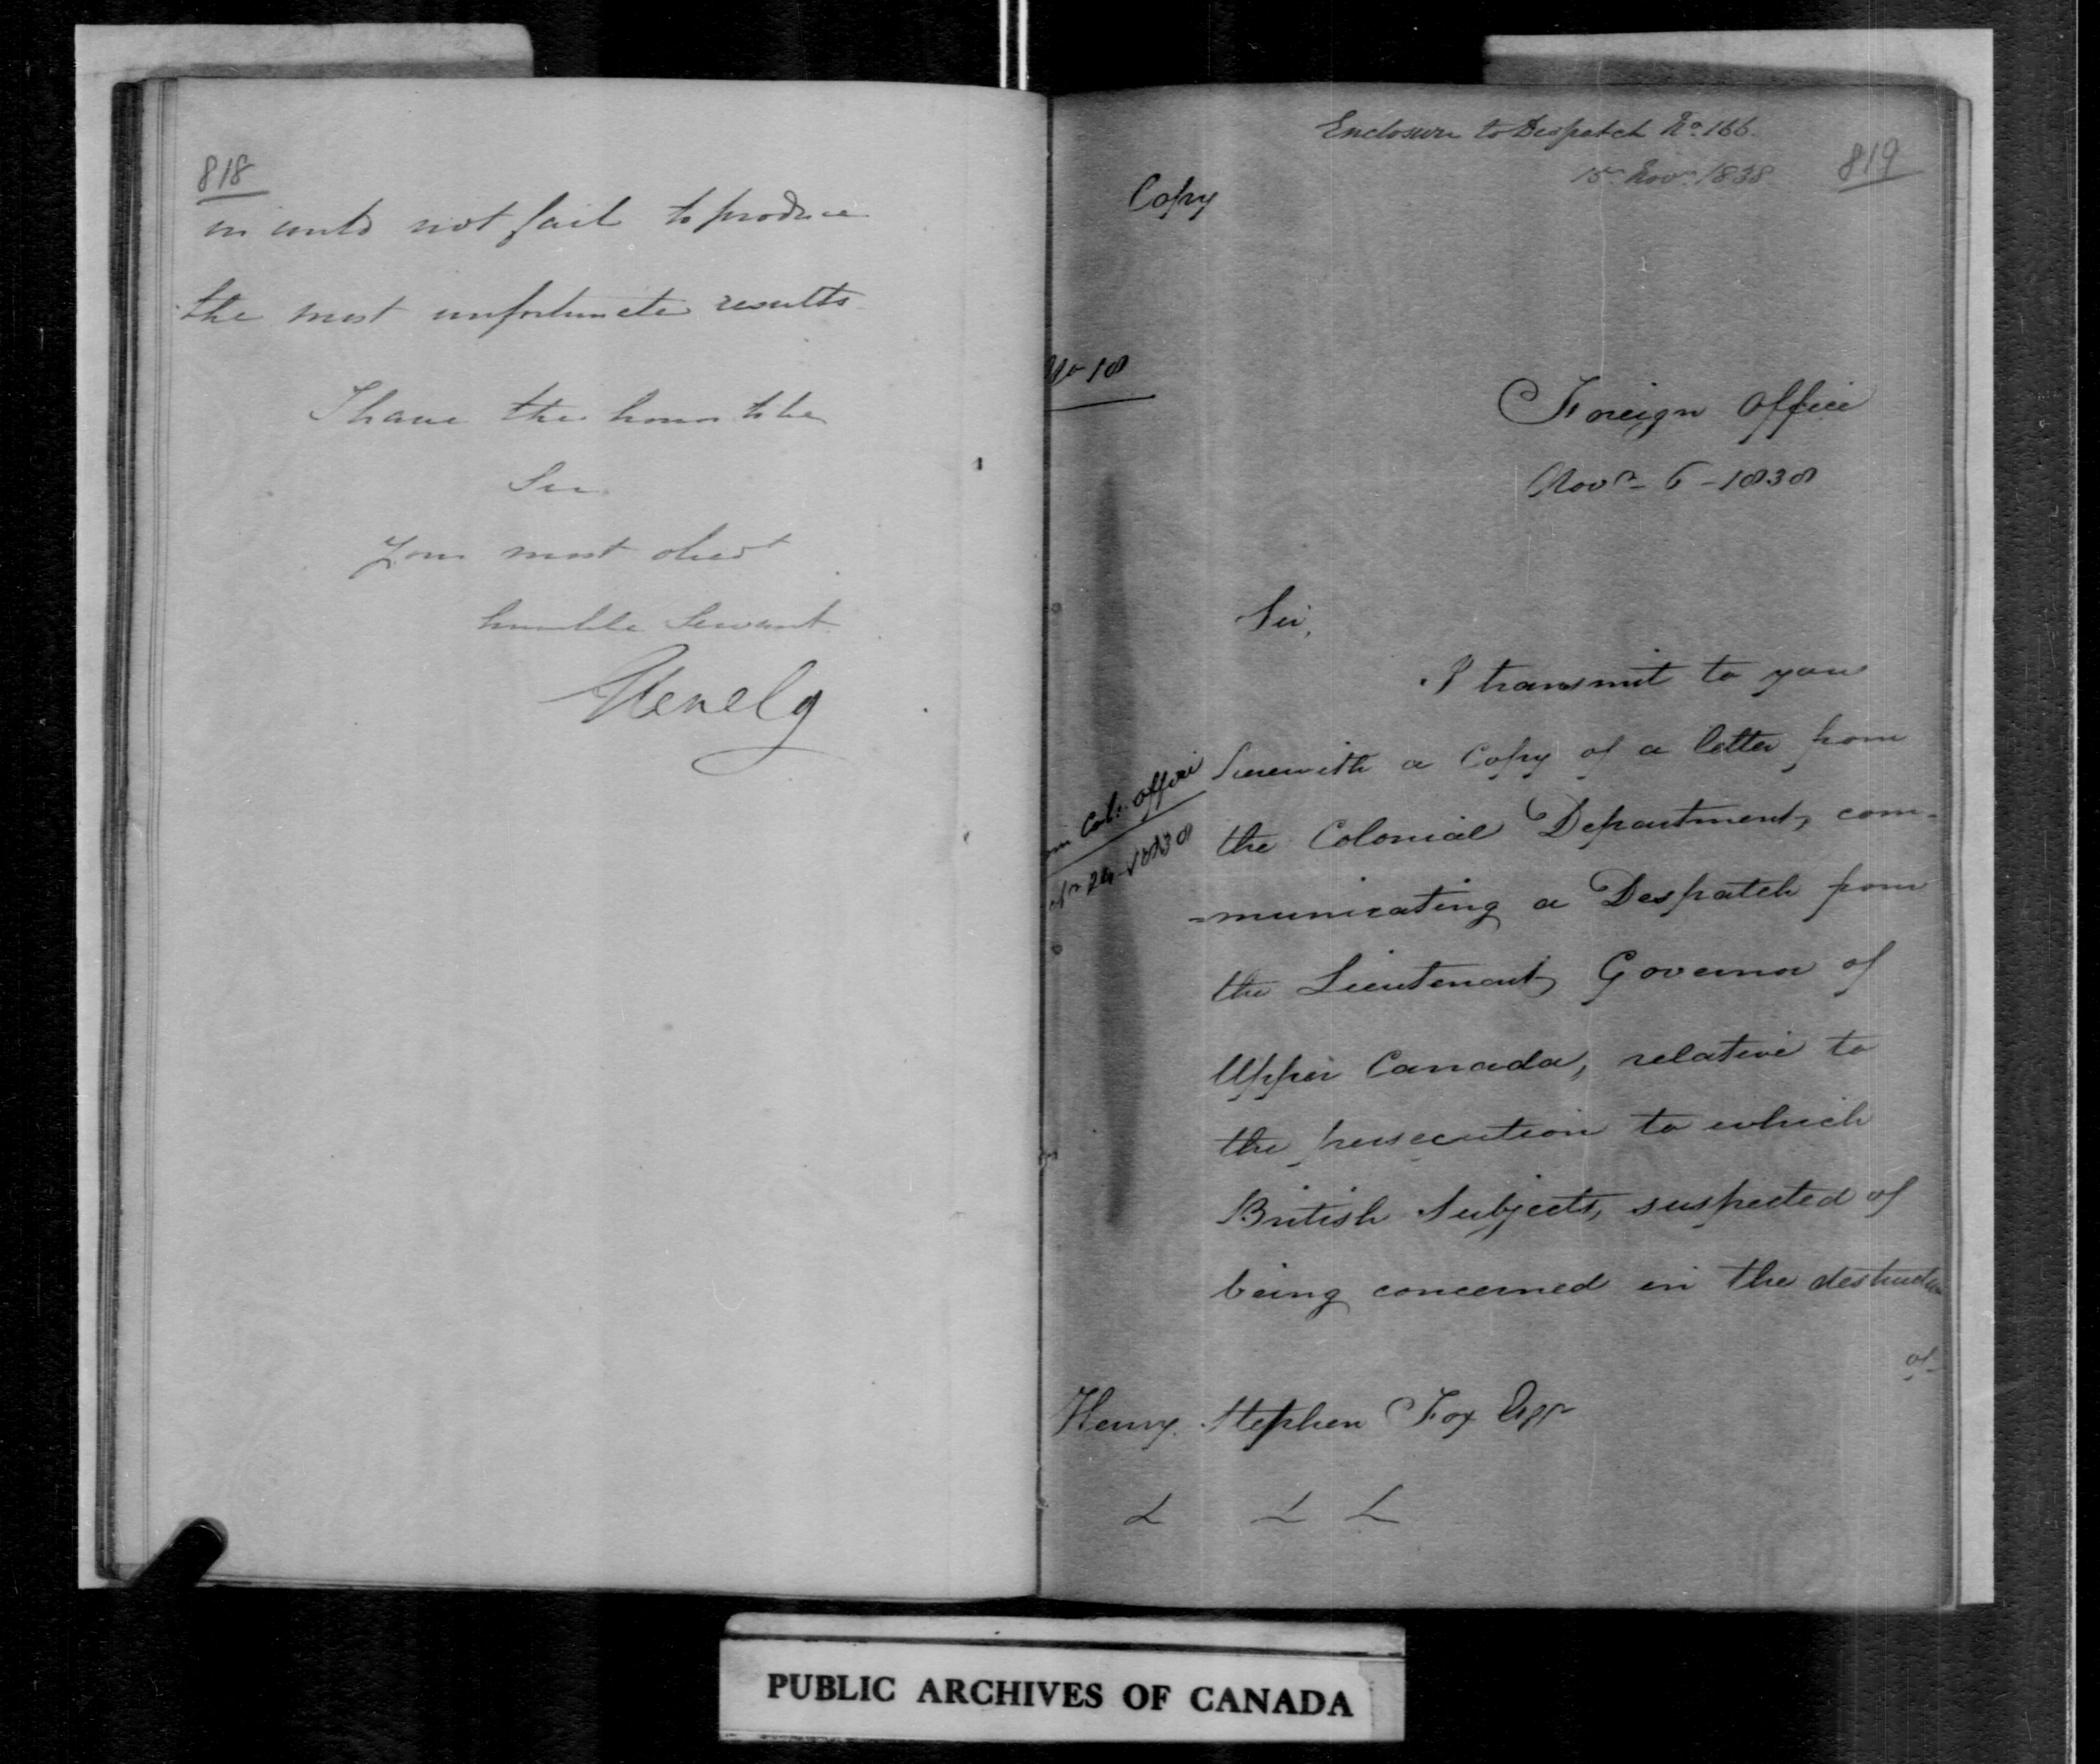 818
not fail to produce
the most unfortunate results
I have the honor to be
Sir
Your most obedt
humble Servant
Glenelg
Enclosure to Despatch No. 166.
15 Novr 1838
819
Copy
No 18
Foreign Office
Novr 6 - 1838
Sir,
I transmit to you
herewith a Copy of a letter from
the Colonial Department, com-
=municating a Despatch from
the Lieutenant Governor of
Upper Canada, relative to
the persecution to which
British Subjects, suspected of
being concerned in the destruction
of
Col: Office
1838
Henry Stephen Fox Esqr
PUBLIC ARCHIVES OF CANADA